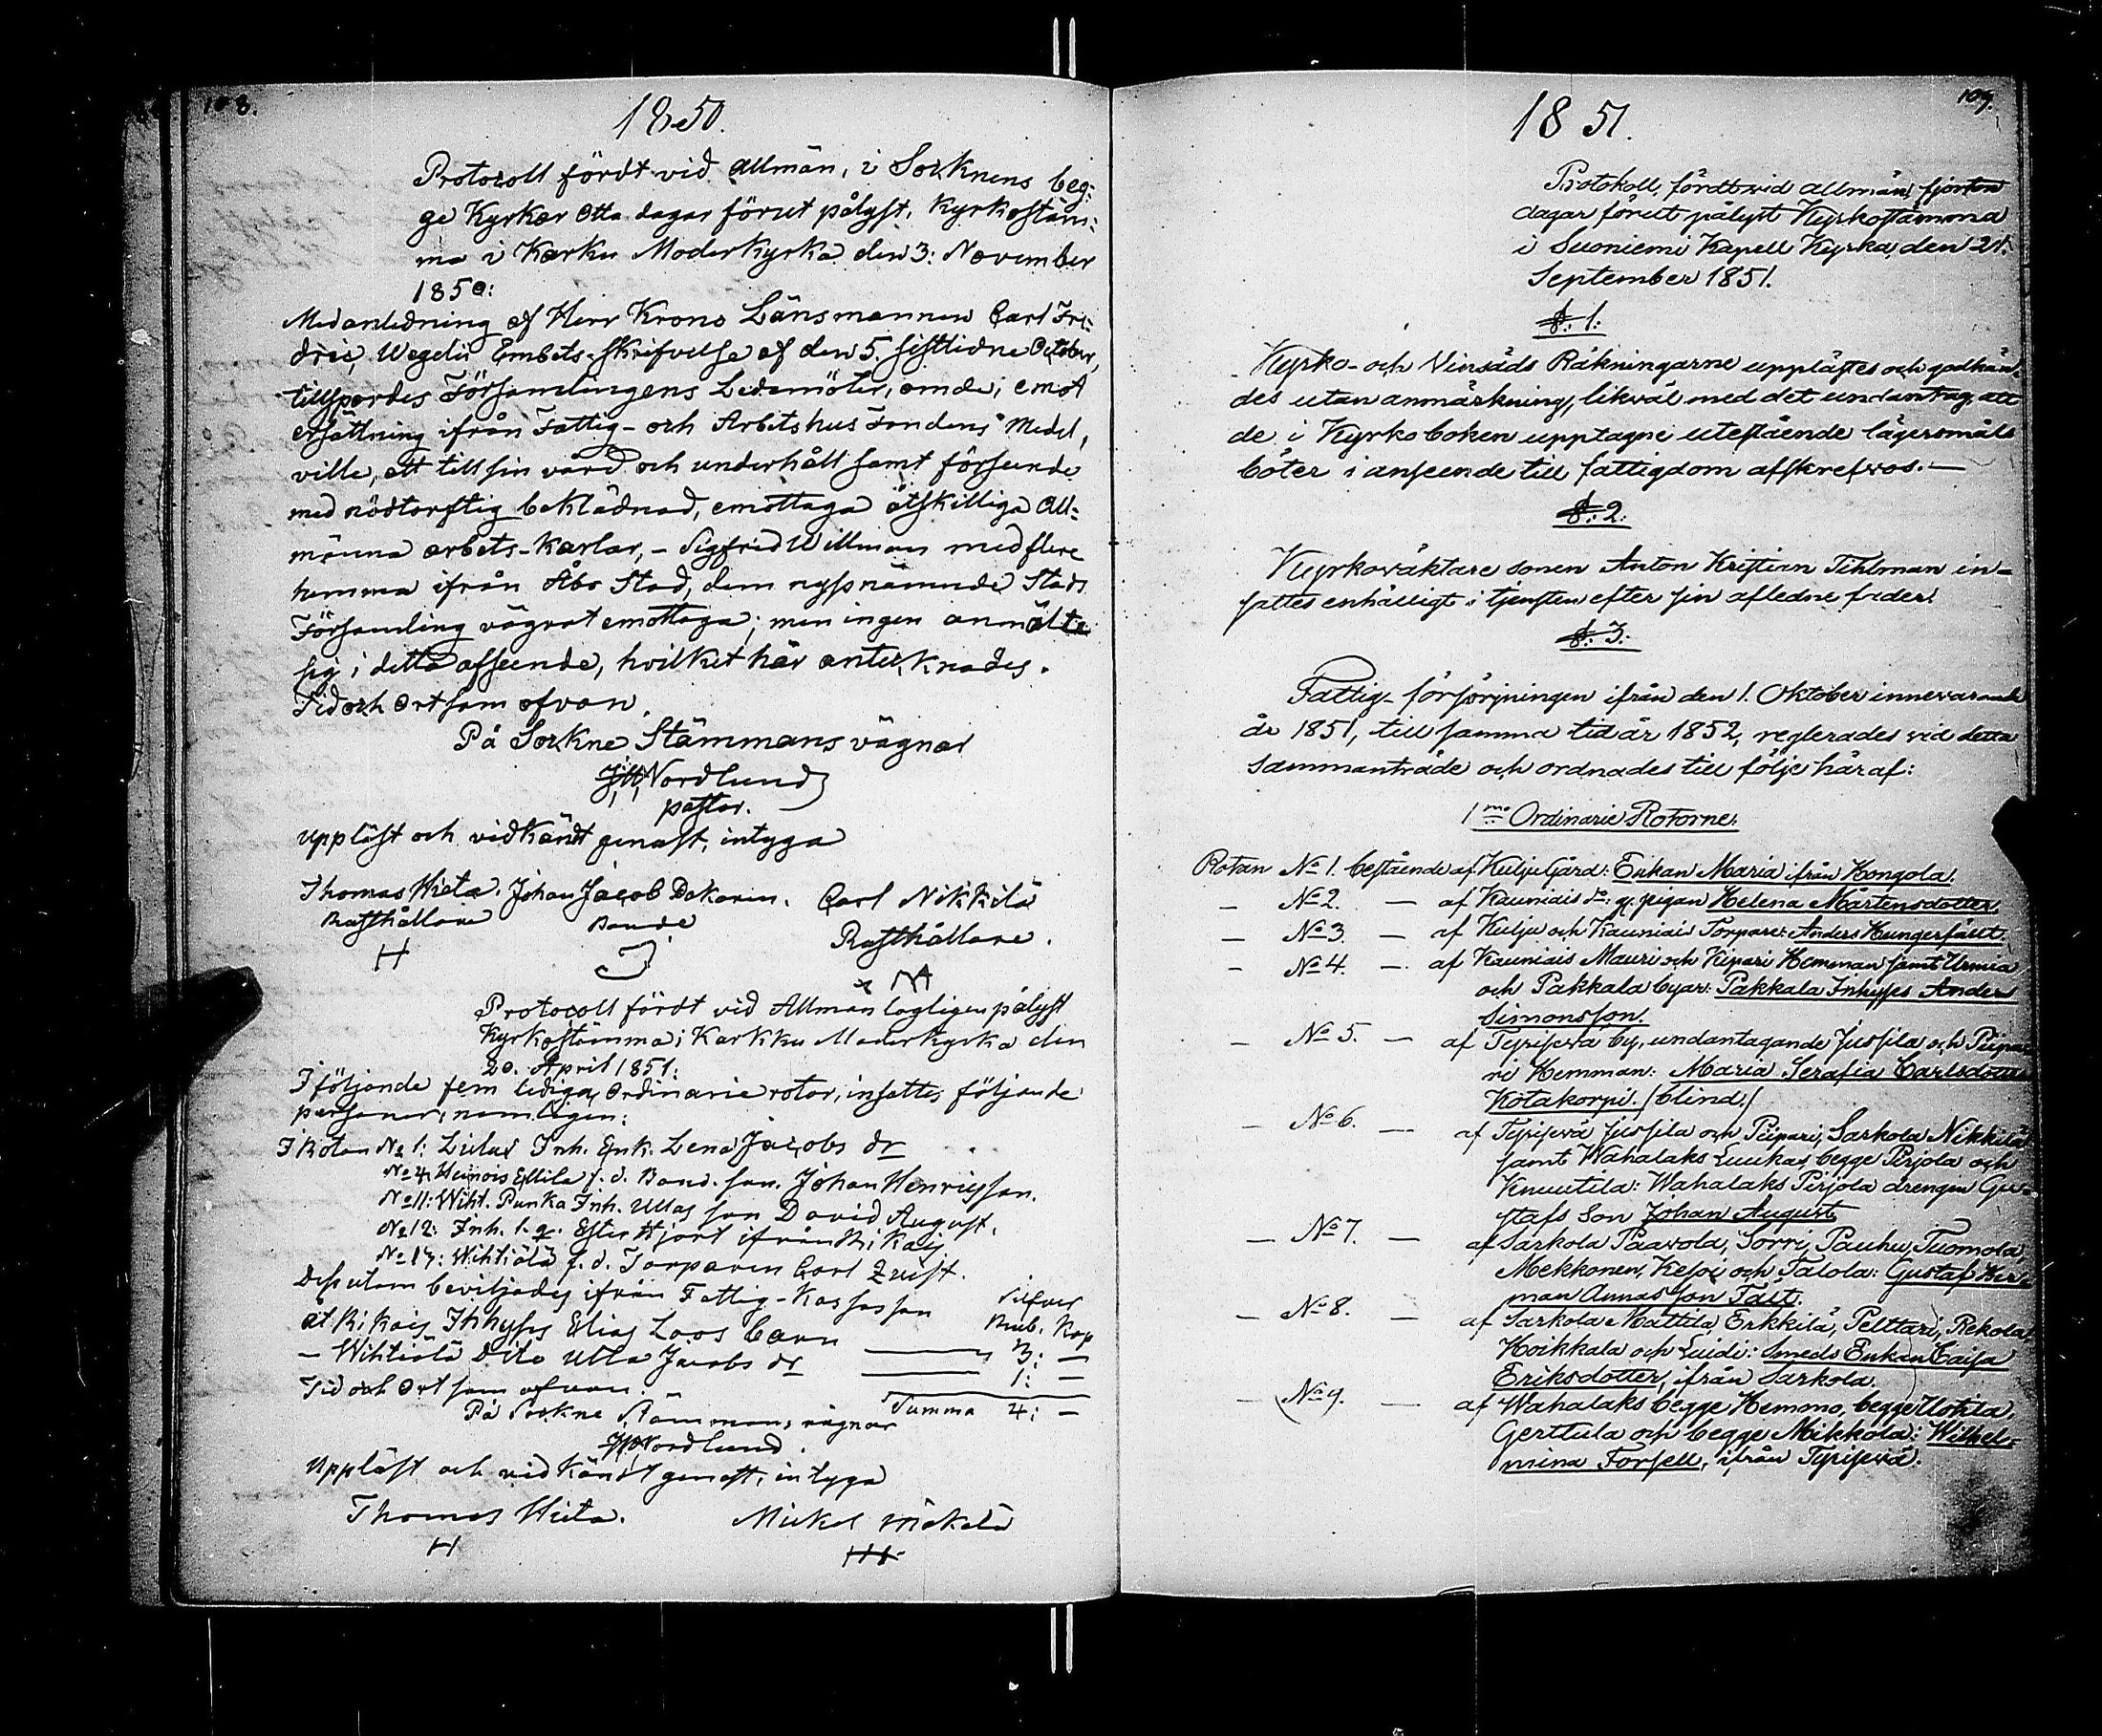 108.
1850.
Protocoll fördt vid allmän, i Socknens beg-
ge Kyrkor Otta dagar förut pålyst, Kyrkostäm-
ma i Karku Moderkyrka den 3: November
1850:
Med anledning af Herr Krono Länsmannen Carl Fre-
dric Wegelii Embets-skrifvelse af den 5. sistlidne October,
tillspordes Församlingens Ledamöter, om de, emot
ersättning ifrån Fattig- och Arbetshus Fondens Medel,
ville, att till sin vård och underhåll samt förseende
med nödtorftig beklädnad, emottaga åtskilliga All-
männa arbets-Karlar, - Sigfrid Willman med flere
hemma ifrån Åbo Stad, dem nyssnämnde Stads
Församling vägrat emottaga; men ingen anmälte
sig i detta afseende, hvilket här antecknades.
Tid och Ort som ofvan.
På Sockne Stämmans vägnar
Nordlund
pastor.
Uppläst och vidkändt genast, intyga
Thomas Hieta. Johan Jacob Dakarin. Carl Nikkilä
Rusthållare Bonde Rusthållare.
H J
Protocoll fördt vid Allmän lagligen pålyst
Kyrkostämma i Karkku Moderkyrka den
20. April 1851:
I följande fem lediga Ordinarie rotor, insattes följande
personer, nemligen:
I Rotan No 1: Inh. Enk. Lena Jacobs dr
No 4: Heinois Ellilä f. d. Bond. son. Johan Henricsson.
No 11: Wiht. Punka Inh. Ullas son David August.
No 12: Inh. Ester Hjort ifrån Rikais
No 17: Wihtiälä f. d. Torparen Carl Qvist.
Dessutom beviljades ifrån Fattig-Kassan Silfver
åt Rikais Inhyses Elias Loos barn Rub. Kop
3: —
— Wihtiälä Dito Ulla Jacobs dr 1: —
Tid och Ort som ofvan. Summa 4: —
På Sockne Stämmans vägnar
Nordlund.
Uppläst och vidkändt genast, intyga
Thomas Hieta. Mickel Mäkelä
H
109.
1851.
Protokoll, fördt vid allmän, fjorton
dagar förut pålyst Kyrkostämma
i Suoniemi Kapell Kyrka, den 21.
September 1851.
§: 1:
Kyrko- och Vinsäds Räkningarne upplästes och godkän-
des utan anmärkning, likväl med det undantag, att
de i Kyrkoboken upptagne utestående lägersmåls
böter i anseende till fattigdom afskrefvos. —
§: 2:
Kyrkoväktare sonen Anton Kristian Tihlman in-
sattes enhälligt i tjensten efter sin aflidne fader.
§: 3:
Fattig-försörjningen ifrån den 1. Oktober innevarande
år 1851, till samma tid år 1852, reglerades vid detta
sammanträde och ordnades till följe häraf:
1mo Ordinarie Rotorne:
Rotan No 1. bestående af Kulju Gård: Enkan Maria ifrån Hongola.
— No 2. — af Kauniais do: pigan Helena Mårtensdotter.
— No 3. — af Kulju och Kauniais Torpare: Anders Hungerfält.
— No 4. — af Kauniais Mauri och Kipari Hemman samt Urmia
och Pakkala byar: Pakkala Inhyses Anders
Simonsson.
— No 5. — af Tyrisevä by, undantagande Jussila och Piipa-
ri Hemman: Maria Serafia Carlsdotter
Kotakorpi. /blind./
— No 6. — af Tyrisevä Jussila och Piipari, Sarkola Nikkilä
samt Wahalaks Luukas, begge Pirjola och
Knuutila: Wahalaks Pirjola drengen Gu-
stafs son Johan August.
— No 7. — af Sarkola Paavola, Sorri, Pauhu, Tuomola,
Mekkonen, Kespi och Talola: Gustaf Her-
man Annas son Fält.
— No 8. — af Sarkola Mattila, Erkkilä, Pelttari, Rekola,
Hoikkala och Luidi: Smeds Enkan Caisa
Eriksdotter, ifrån Sarkola.
— No 9. — af Wahalaks begge Hemmo, begge Uotila,
Gerttula och begge Mikkola: Wilhel-
mina Forsell, ifrån Tyrisevä.